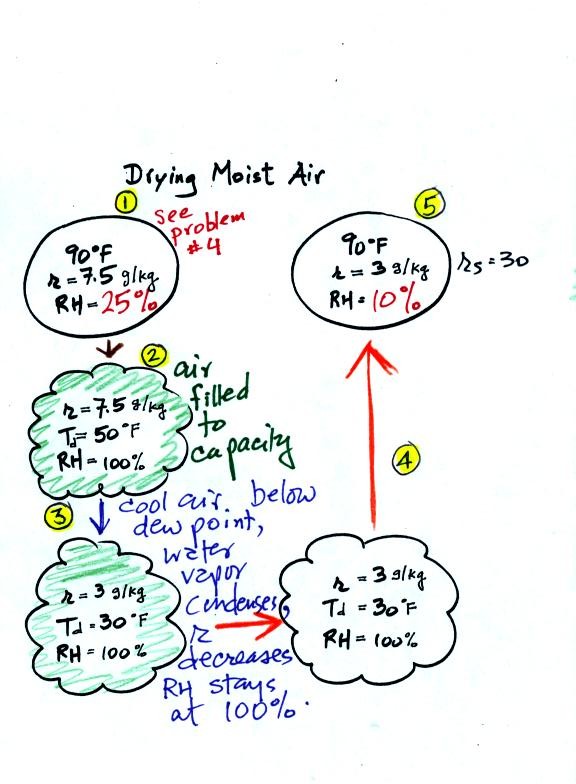 Drying Moist Air
1
see
problem
#4
90°F
r = 7.5 g/kg
RH = 25%
5
90°F
r = 3 g/kg
RH = 10%
rs = 30
2
air
filled
to
capacity
r = 7.5 g/kg
Td = 50°F
RH = 100%
3
cool air below
dew point,
water
vapor
condenses,
r
decreases
RH stays
at 100%.
r = 3 g/kg
Td = 30°F
RH = 100%
4
r = 3 g/kg
Td = 30°F
RH = 100%